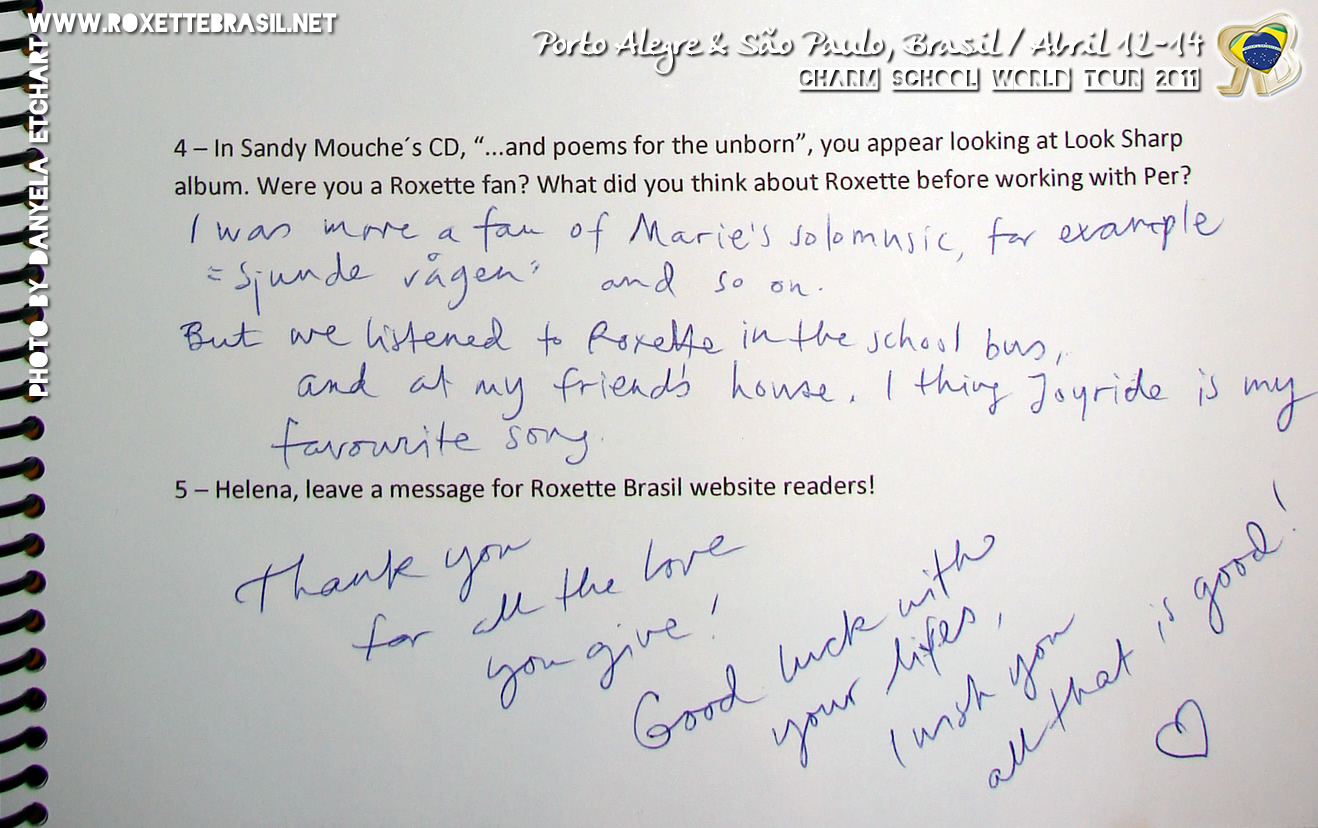 WWW.ROXETTEBRASIL.NET
Porto Alegre & São Paulo, Brasil / Abril 12-14
CHARM SCHOOL WORLD TOUR 2011
PHOTO BY DANYELA ETCHART
4 – In Sandy Mouche´s CD, “...and poems for the unborn”, you appear looking at Look Sharp
album. Were you a Roxette fan? What did you think about Roxette before working with Per?
I was more a fan of Marie's solomusic, for example
"Sjunde vågen" and so on.
But we listened to Roxette in the school bus,
and at my friend's house. I thing Joyride is my
favourite song.
5 – Helena, leave a message for Roxette Brasil website readers!
Thank you
for all the love
you give!
Good luck with
your lifes,
I wish you
all that is good!